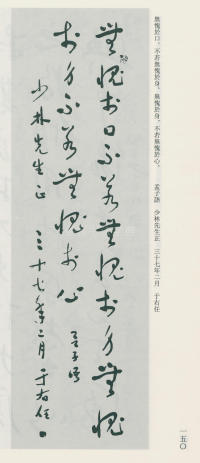 無愧於口、不若無愧於身、無愧於身、不若無愧於心。　孟子語　少林先生正　三十七年二月　于右任
無愧於口不若無愧於身無愧
於身不若無愧於心　孟子語
少林先生正　三十七年二月　于右任
一五〇